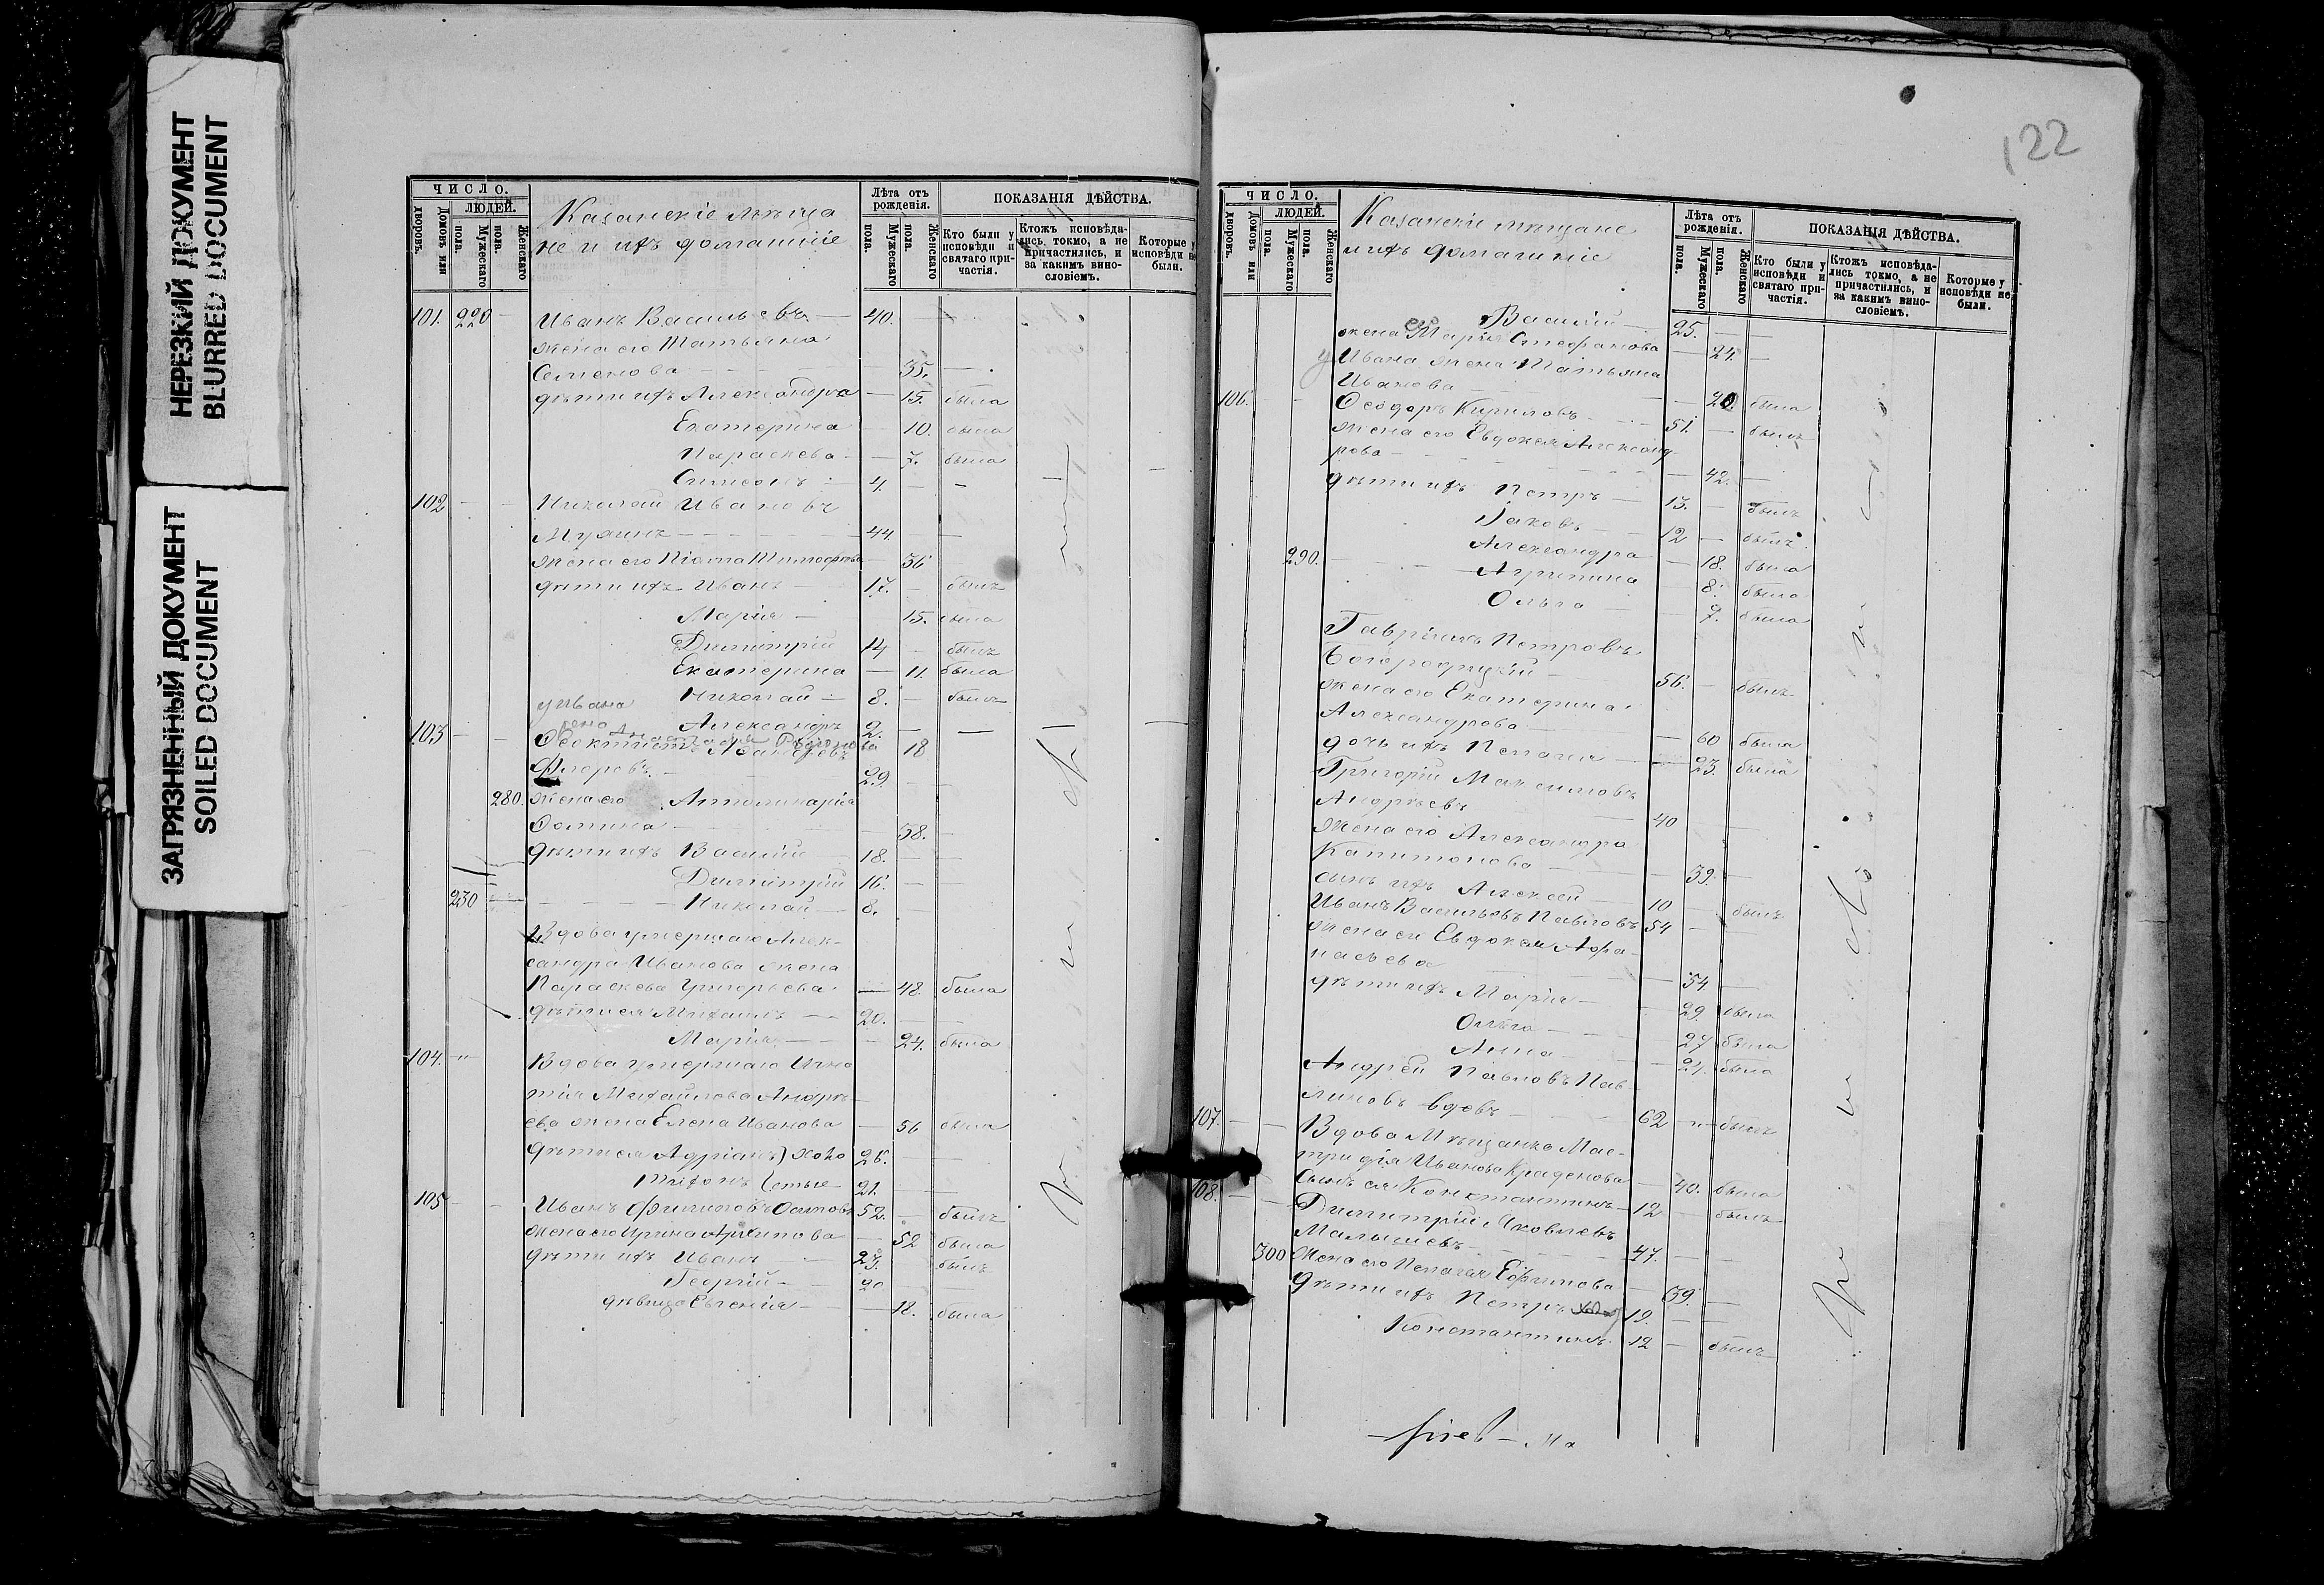 НЕРЕЗКИЙ ДОКУМЕНТ
BLURRED DOCUMENT
ЗАГРЯЗНЕННЫЙ ДОКУМЕНТ
SOILED DOCUMENT
ЧИСЛО.
ЛЮДЕЙ.
Домовъ или дворовъ.
Мужескаго пола.
Женскаго пола.
Казанскіе мѣща
не и ихъ домашніе
Лѣта отъ рожденія.
Мужескаго пола.
Женскаго пола.
ПОКАЗАНІЯ ДѢЙСТВА.
Кто были у исповѣди и святаго причастія.
Ктожъ исповѣдались токмо, а не причастились, и за какимъ винословіемъ.
Которые у исповѣди не были.
101. 220 Иванъ Васильевъ 40.
жена его Татьяна
Семенова 35.
дѣти ихъ Александра 15. была
Екатерина 10. была
Параскева 7. была
Симеонъ 4.
102 Николай Ивановъ
44.
жена его Тимофѣева 36
дѣти ихъ Иванъ 17. былъ
Марія 15. была
Димитрій 14 былъ
Екатерина 11. была
Николай 8. былъ
у Ивана
Александръ 2.
жена 18
103 Феоктистъ
29.
280. жена его Апполинарія
38.
дѣти ихъ Василій 18.
Димитрій 16.
230 Николай 8.
Вдова умершаго Алек-
сандра Иванова жена
Параскева Григорьева 48. была
дѣти ея Михаилъ 20.
Марія 24. была
104. Вдова умершаго Игна
тія Михайлова Андрѣ-
ева жена Елена Иванова 56 была
дѣти ея Адріанъ холо 26.
стые 21.
105 Иванъ Филиповъ Осиповъ 52. былъ
жена его Ирина Архипова 52 была
дѣти ихъ Иванъ 27. былъ
Георгій 20
дѣвица Евгенія 18. была
122
ЧИСЛО.
ЛЮДЕЙ.
Домовъ или дворовъ.
Мужескаго пола.
Женскаго пола.
Казанскіе мѣщане
и ихъ домашніе
Лѣта отъ рожденія.
Мужескаго пола.
Женскаго пола.
ПОКАЗАНІЯ ДѢЙСТВА.
Кто были у исповѣди и святаго причастія.
Ктожъ исповѣдались токмо, а не причастились, и за какимъ винословіемъ.
Которые у исповѣди не были.
Василій 25.
жена его Марія Стефанова 24.
у Ивана жена Татьяна
Иванова 20. была
106. Феодоръ Кириловъ 51. былъ
жена его Евдокія Александ-
рова 42.
дѣти ихъ Петръ 13. былъ
Іаковъ 12 былъ
Александра 18. была
290. Агрипина 8. была
Ольга 7. была
Гавріилъ Петровъ
Богородицкій 56. былъ
жена его Екатерина
Александрова 60 была
дочь ихъ Пелагія 23. была
Григорій Максимовъ
Андреевъ 40
жена его Александра
Капитонова 39.
сынъ ихъ Алексѣй 10 былъ
Иванъ Васильевъ Павловъ 54
жена его Евдокія Афа-
насьева 54
дѣти ихъ Марія 29 была
Ольга 27 была
Анна 21. была
Андрей Павловъ Пав-
линовъ вдовъ 62 былъ
107. Вдова Мѣщанка Мас-
тридія Иванова 40. была
Сынъ ея Константинъ 12 былъ
108. Димитрій Яковлевъ
Малышевъ 47.
300 Жена его Пелагея Ефимова 39.
дѣти ихъ Петръ 19.
Константинъ 12 былъ